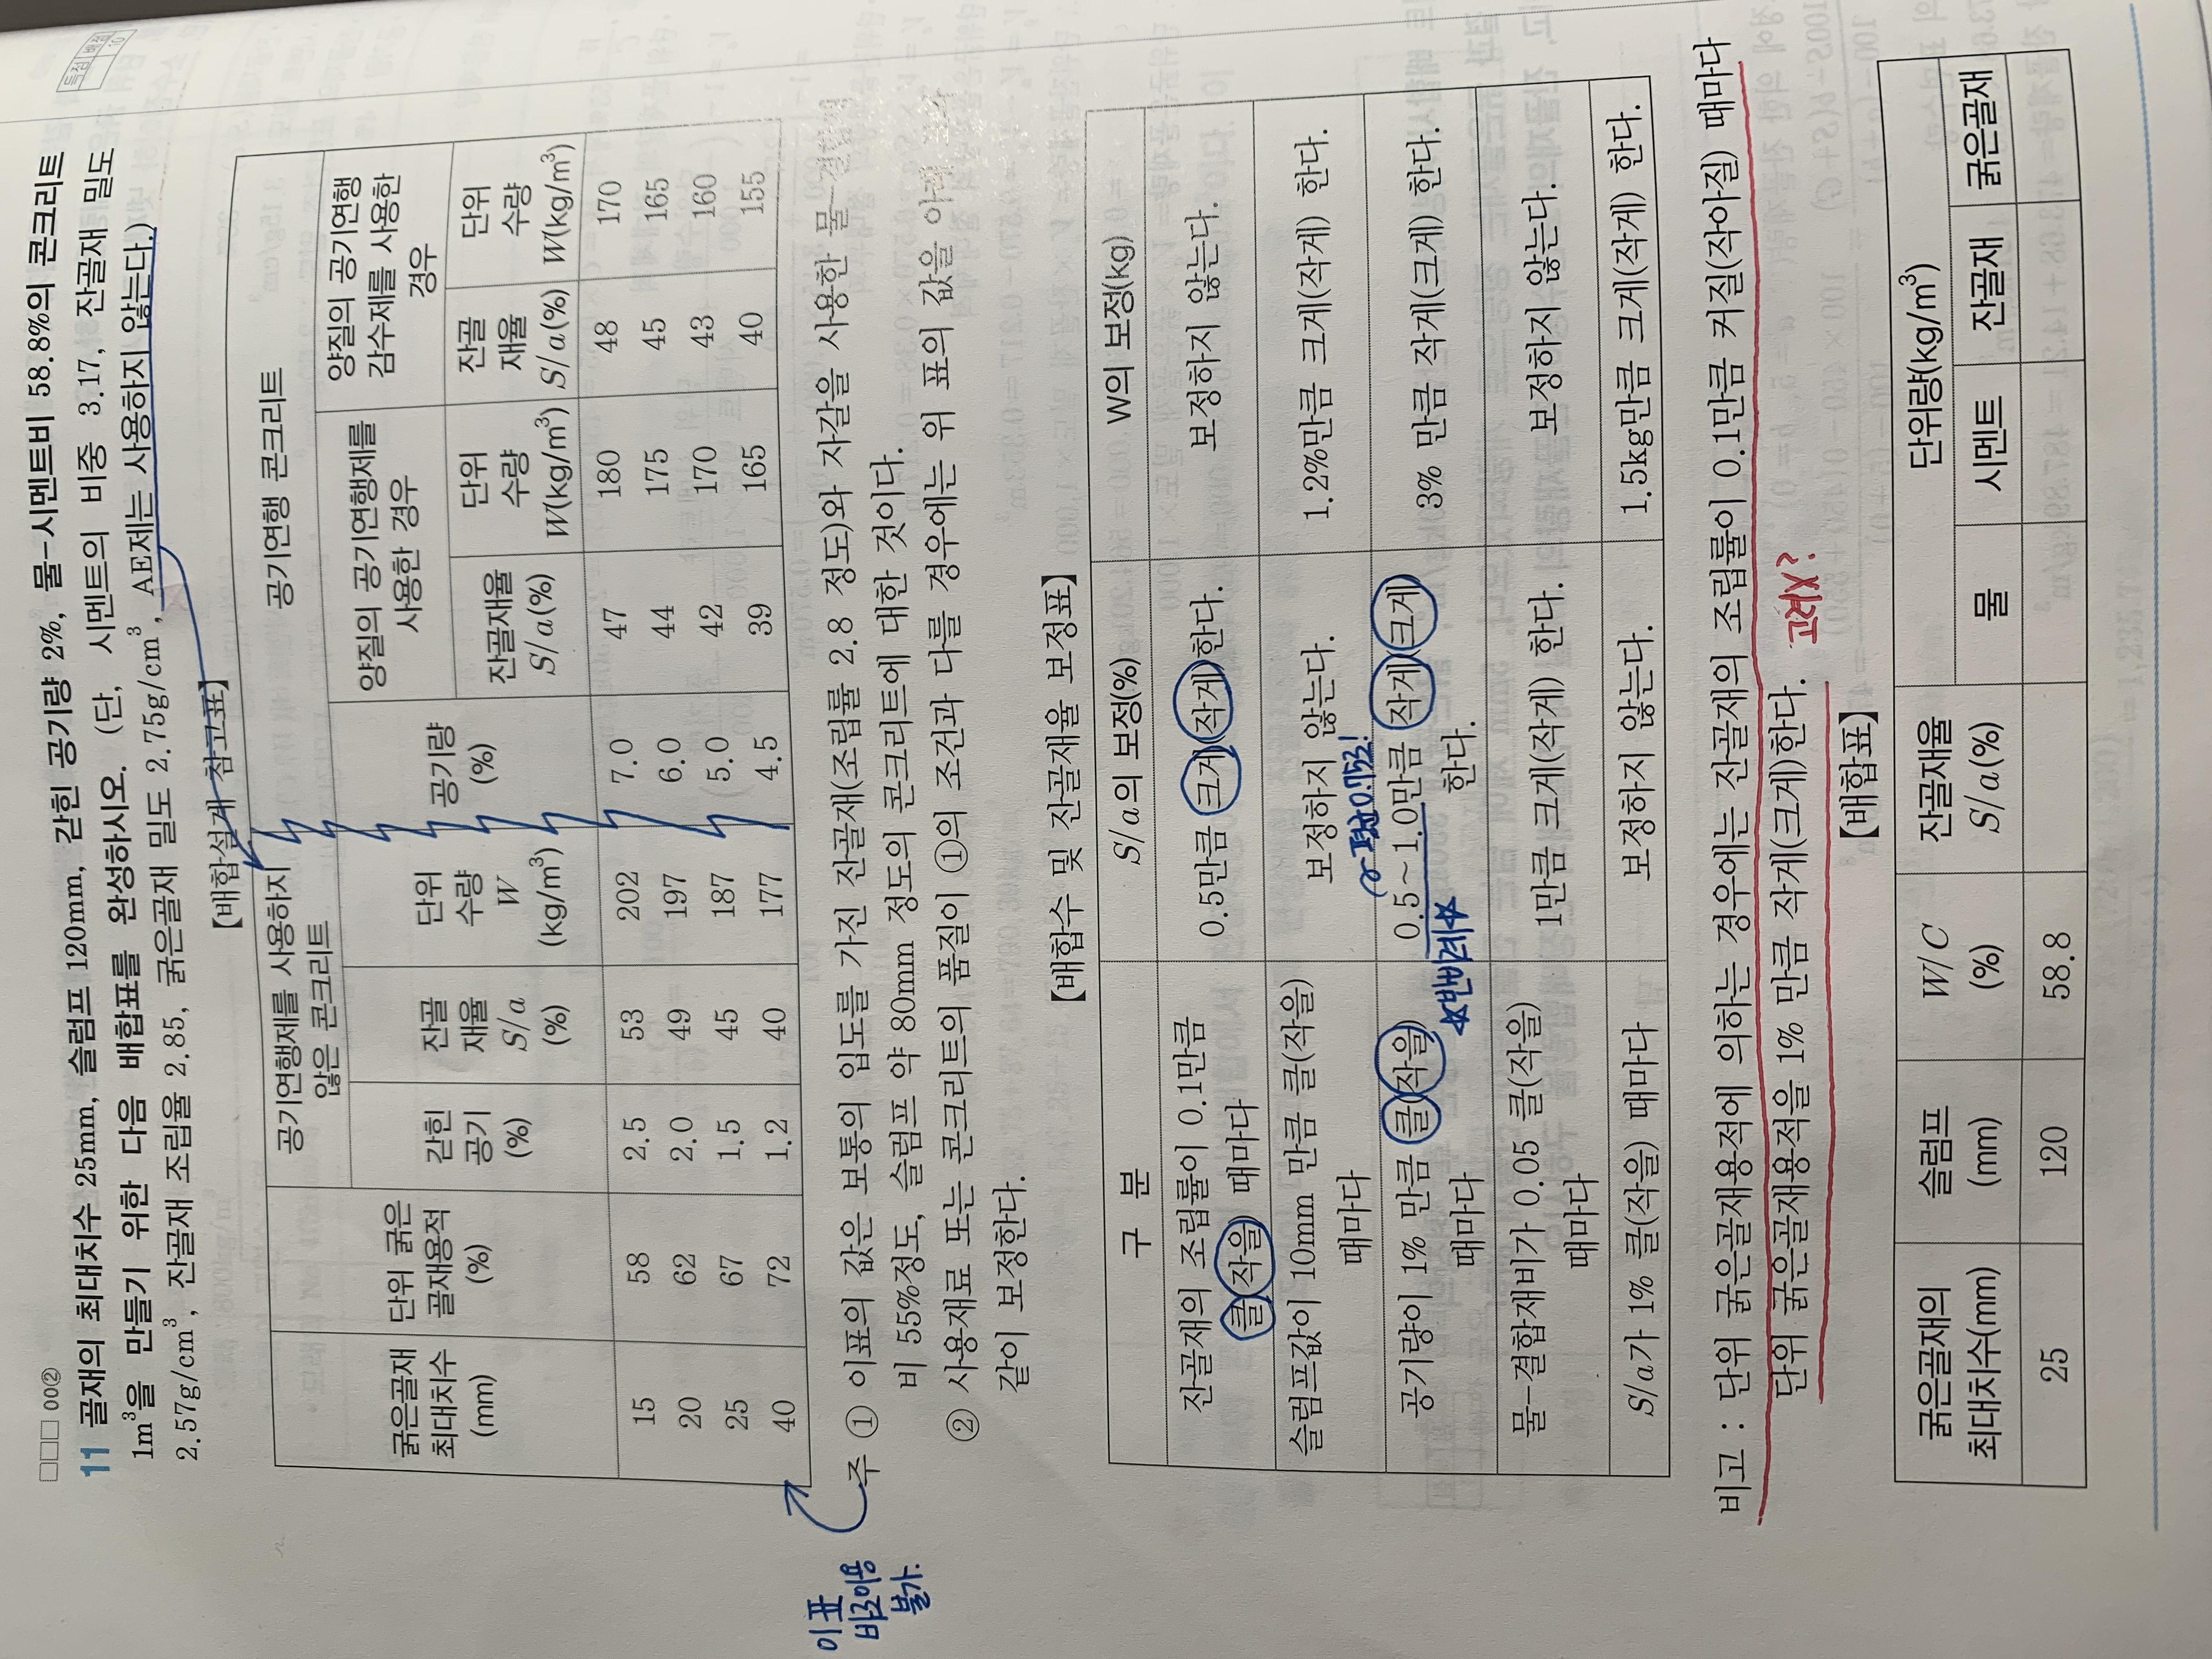 □□□ 00②
11 골재의 최대치수 25mm, 슬럼프 120mm, 갇힌 공기량 2%, 물-시멘트비 58.8%의 콘크리트
1m³을 만들기 위한 다음 배합표를 완성하시오. (단, 시멘트의 비중 3.17, 잔골재 밀도
2.57g/cm³, 잔골재 조립율 2.85, 굵은골재 밀도 2.75g/cm³, AE제는 사용하지 않는다.)
득점 배점
10
【배합설계 참고표】
굵은골재 최대치수 (mm) | 단위 굵은 골재용적 (%) | 공기연행제를 사용하지 않은 콘크리트 | 공기연행 콘크리트
갇힌 공기 (%) | 잔골 재율 S/a (%) | 단위 수량 W (kg/m³) | 공기량 (%) | 양질의 공기연행제를 사용한 경우 | 양질의 공기연행 감수제를 사용한 경우
잔골재율 S/a(%) | 단위 수량 W(kg/m³) | 잔골 재율 S/a(%) | 단위 수량 W(kg/m³)
15 58 2.5 53 202 7.0 47 180 48 170
20 62 2.0 49 197 6.0 44 175 45 165
25 67 1.5 45 187 5.0 42 170 43 160
40 72 1.2 40 177 4.5 39 165 40 155
이 표
바로이용
불가.
주 ① 이표의 값은 보통의 입도를 가진 잔골재(조립률 2.8 정도)와 자갈을 사용한 물-결합재
비 55%정도, 슬럼프 약 80mm 정도의 콘크리트에 대한 것이다.
② 사용재료 또는 콘크리트의 품질이 ①의 조건과 다를 경우에는 위 표의 값을 아래 표와
같이 보정한다.
【배합수 및 잔골재율 보정표】
구 분 | S/a의 보정(%) | W의 보정(kg)
잔골재의 조립률이 0.1만큼 클(작을) 때마다 | 0.5만큼 크게(작게)한다. | 보정하지 않는다.
슬럼프값이 10mm 만큼 클(작을) 때마다 | 보정하지 않는다. | 1.2%만큼 크게(작게) 한다.
공기량이 1% 만큼 클(작을) 때마다 | 0.5~1.0만큼 작게(크게) 한다. | 3% 만큼 작게(크게) 한다.
☆반비례☆
물-결합재비가 0.05 클(작을) 때마다 | 1만큼 크게(작게) 한다. | 보정하지 않는다.
S/a가 1% 클(작을) 때마다 | 보정하지 않는다. | 1.5kg만큼 크게(작게) 한다.
비고 : 단위 굵은골재용적에 의하는 경우에는 잔골재의 조립률이 0.1만큼 커질(작아질) 때마다
단위 굵은골재용적을 1% 만큼 작게(크게)한다. 고려X?
【배합표】
굵은골재의 최대치수(mm) | 슬럼프 (mm) | W/C (%) | 잔골재율 S/a(%) | 단위량(kg/m³)
물 | 시멘트 | 잔골재 | 굵은골재
25 120 58.8